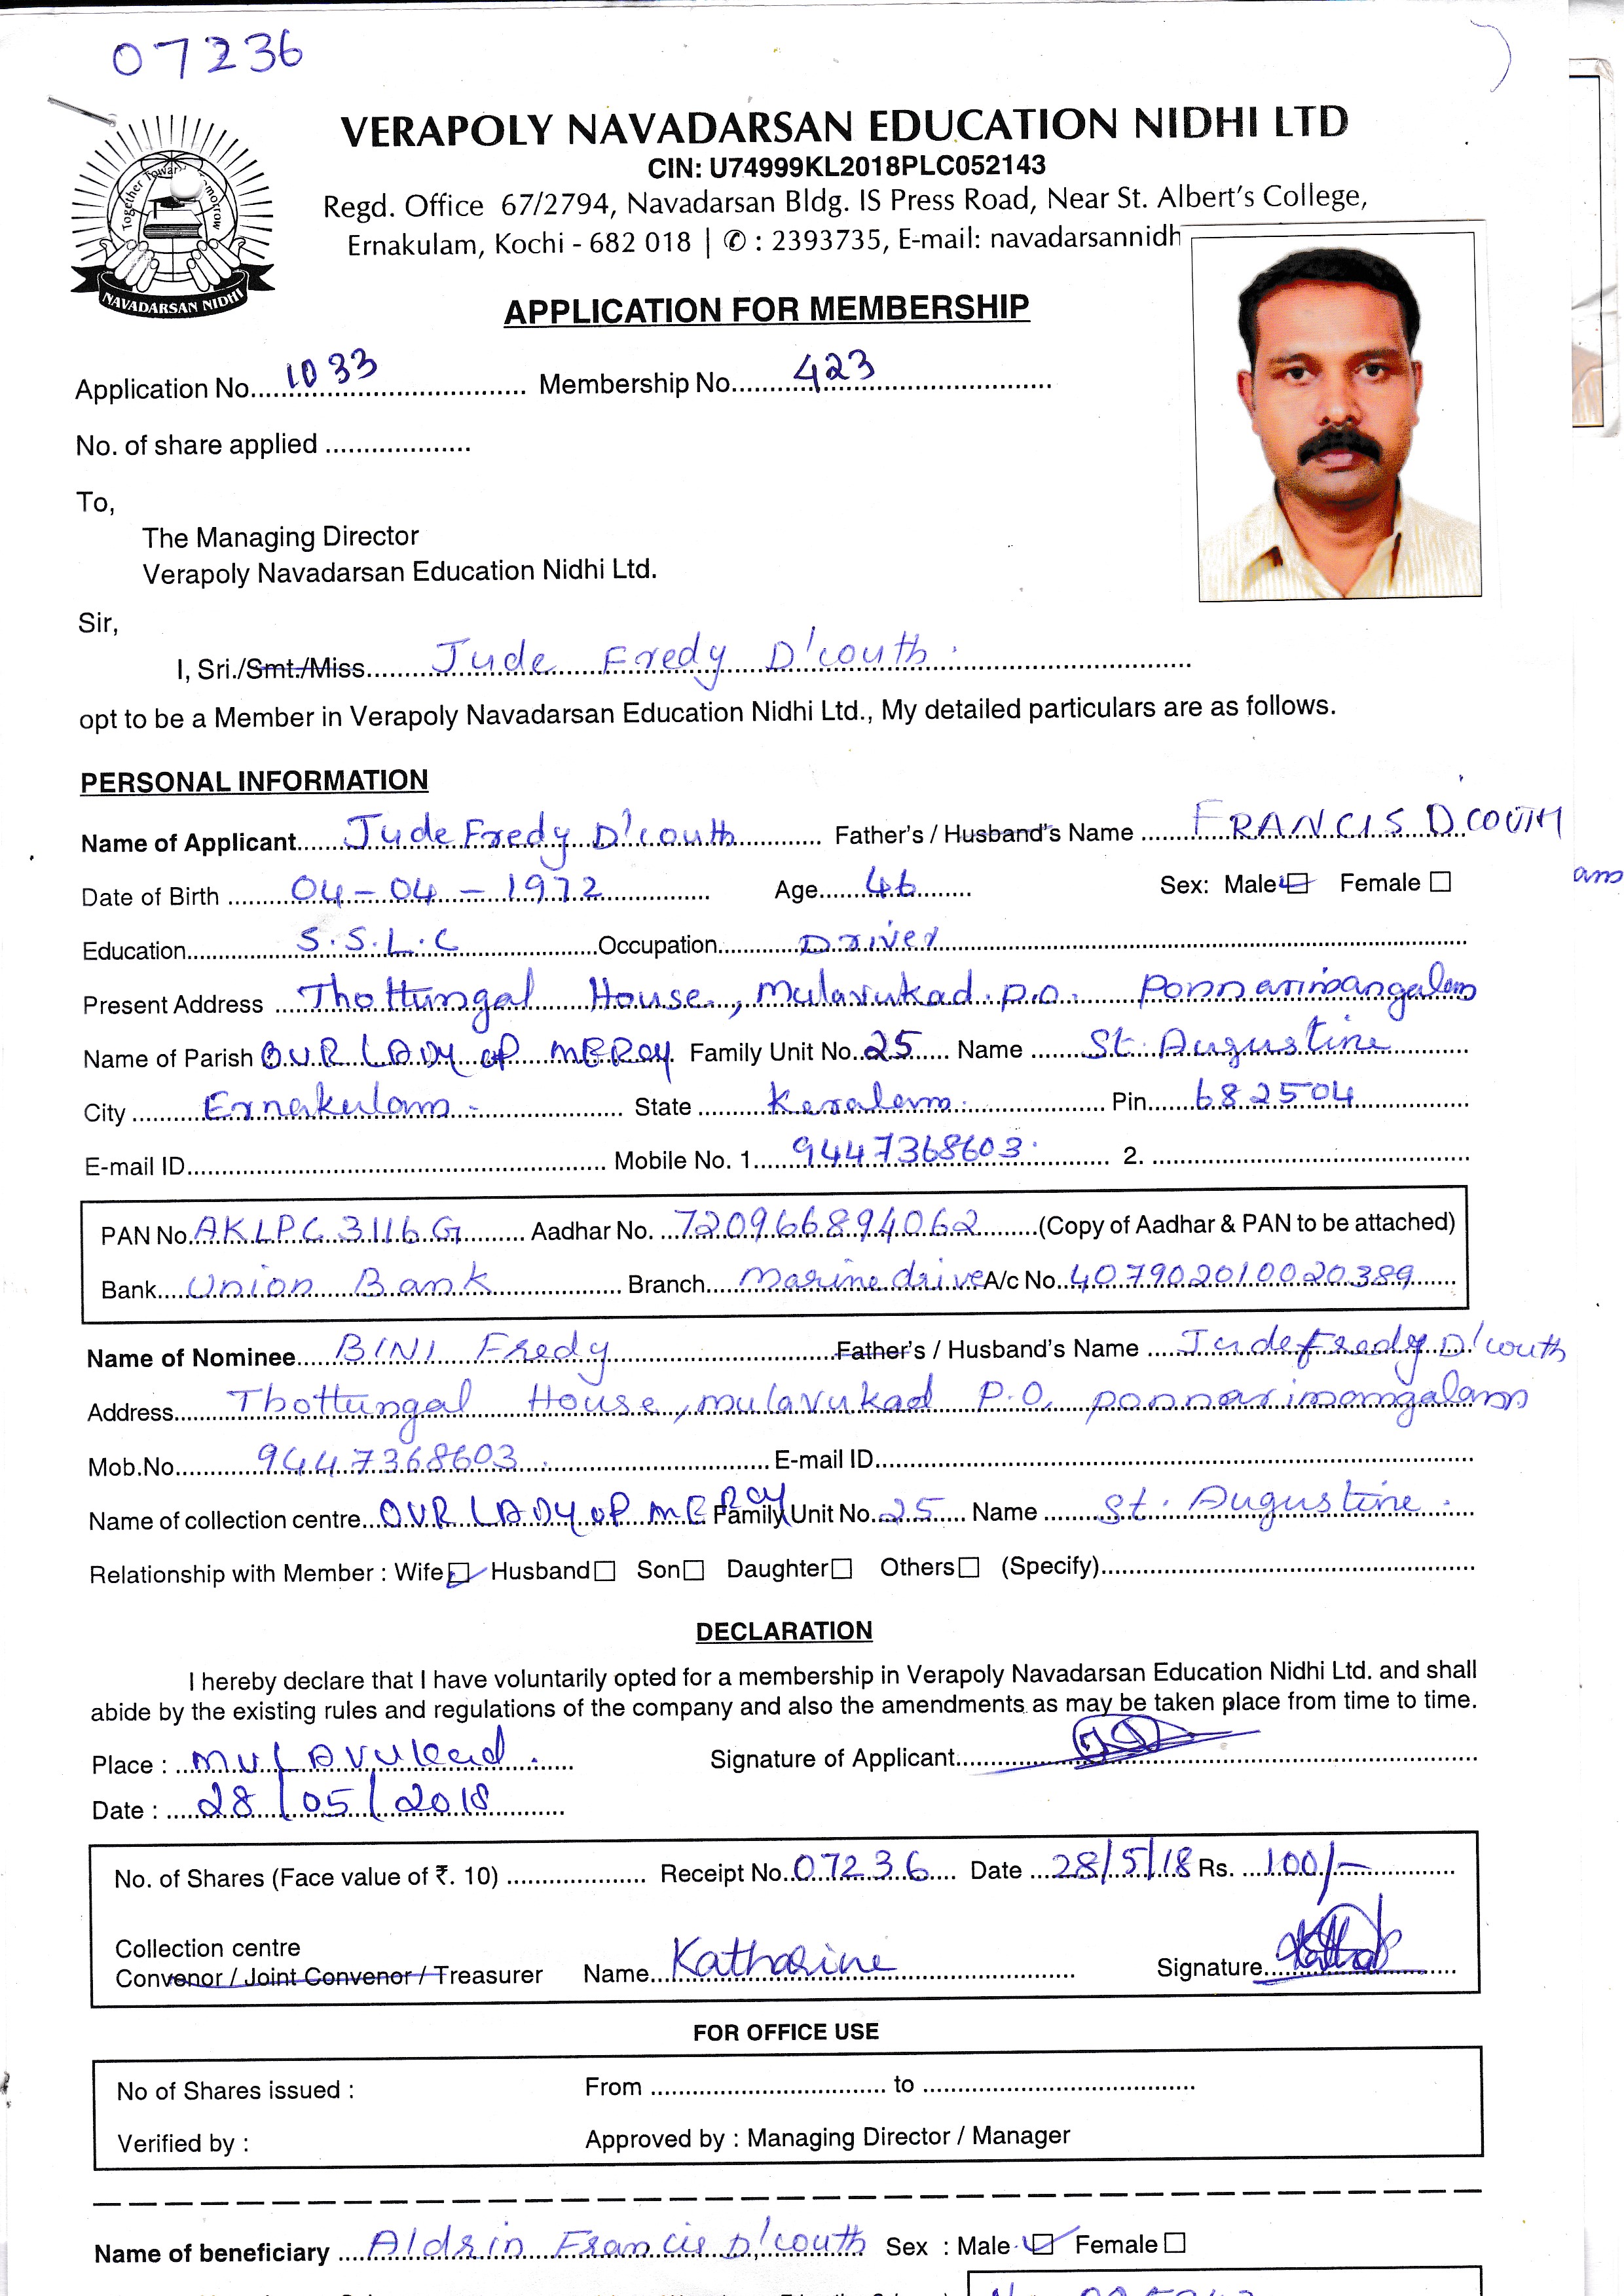 07236
VERAPOLY NAVADARSAN EDUCATION NIDHI LTD
CIN: U74999KL2018PLC052143
Regd. Office 67/2794, Navadarsan Bldg. IS Press Road, Near St. Albert's College,
Ernakulam, Kochi - 682 018 | ✆ : 2393735, E-mail: navadarsannidh
Together Towar
NAVADARSAN NIDHI
APPLICATION FOR MEMBERSHIP
Application No. 1033 Membership No. 423
No. of share applied
To,
The Managing Director
Verapoly Navadarsan Education Nidhi Ltd.
Sir,
I, Sri./Smt./Miss. Jude Fredy D'couth.
opt to be a Member in Verapoly Navadarsan Education Nidhi Ltd., My detailed particulars are as follows.
PERSONAL INFORMATION
Name of Applicant Jude Fredy D'couth Father's / Husband's Name FRANCIS D COUTH
Date of Birth 04-04-1972 Age 46 Sex: Male ☑ Female ☐
Education S.S.L.C Occupation Driver
Present Address Thottungal House, Mulavukad.p.o. ponnarimangalam
Name of Parish OUR LADY OF MERCY Family Unit No. 25 Name St. Augustine
City Ernakulam. State Keralam. Pin 682504
E-mail ID Mobile No. 1 9447368603 2.
PAN No. AKLPC3116G Aadhar No. 720966894062 (Copy of Aadhar & PAN to be attached)
Bank Union Bank Branch Marine drive A/c No. 407902010020389
Name of Nominee BINI Fredy Father's / Husband's Name Jude fredy D'couth
Address Thottungal House, mulavukad P.O, ponnarimangalam
Mob.No. 9447368603. E-mail ID
Name of collection centre OUR LADY OF MERCY Family Unit No. 25 Name St. Augustine.
Relationship with Member : Wife ☑ Husband ☐ Son ☐ Daughter ☐ Others ☐ (Specify)
DECLARATION
I hereby declare that I have voluntarily opted for a membership in Verapoly Navadarsan Education Nidhi Ltd. and shall
abide by the existing rules and regulations of the company and also the amendments as may be taken place from time to time.
Place : MULAVUKAD. Signature of Applicant
Date : 28/05/2018
No. of Shares (Face value of ₹. 10) Receipt No. 07236 Date 28/5/18 Rs. 100/-
Collection centre
Convenor / Joint Convenor / Treasurer Name Katharine Signature
FOR OFFICE USE
No of Shares issued : From to
Verified by : Approved by : Managing Director / Manager
Name of beneficiary Aldrin Francis D'couth Sex : Male ☑ Female ☐